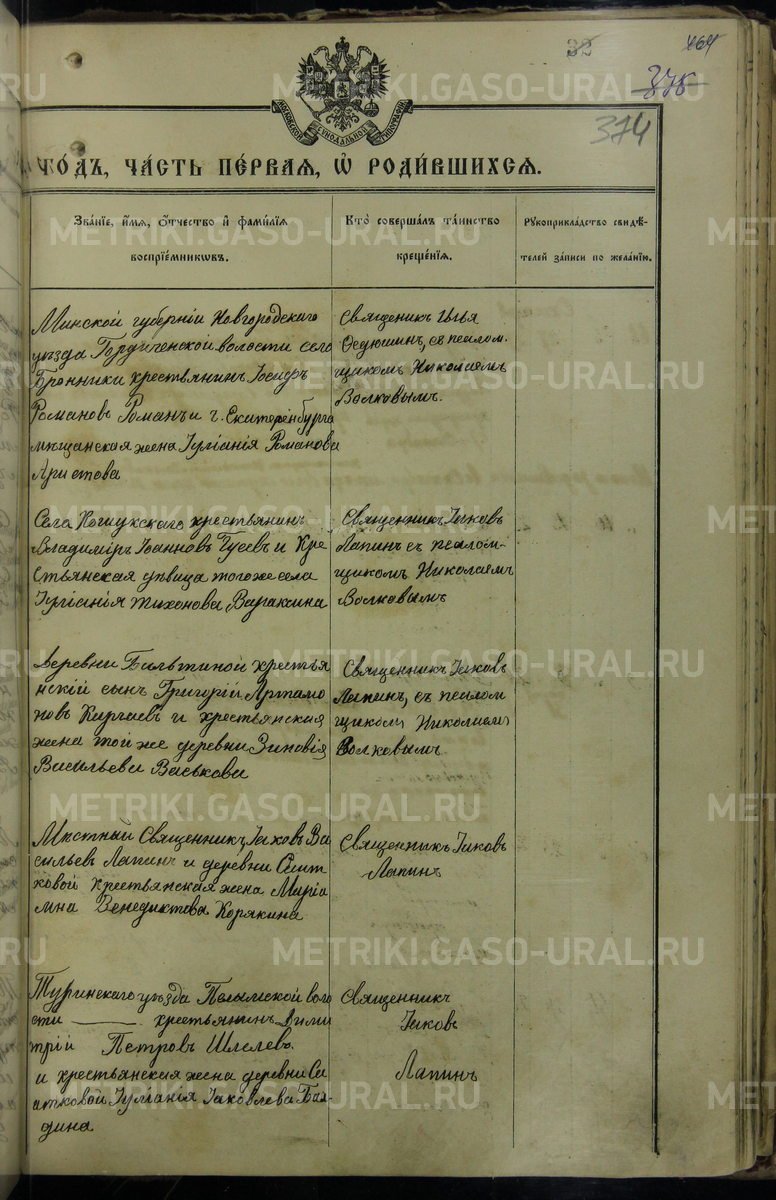 32
464
375
374
МОСКОВСКОЙ СѴНОДАЛЬНОЙ ТИПОГРАФІИ
ГО́ДЪ, ЧА́СТЬ ПЕ́РВАЯ, Ѽ РОДИ́ВШИХСЯ.
Зва́ніе, и́мя, ѻ́тчество и҆ фами́лія
воспріе́мниковъ.
Кто̀ соверша́лъ та́инство
креще́нія.
Рукоприкла́дство свидѣ́-
телей за́писи по жела́нію.
Минской губерніи Новгородскаго
уѣзда Городиченской волости села
Бронники крестьянинъ Іосифъ
Романовъ Романъ и г. Екатеринбурга
мѣщанская жена Іуліанія Романова
Аристова
Священникъ Илья
Федюшинъ, съ псалом-
щикомъ Николаемъ
Волковымъ.
Села Кошукскаго крестьянинъ
Владиміръ Іоанновъ Гусевъ и кре
стьянская дѣвица того же села
Іуліанія Тихонова Вараксина
Священникъ Іаковъ
Лапинъ съ псалом-
щикомъ Николаемъ
Волковымъ
Деревни крестья
нскій сынъ Григорій Артамо
новъ Киргаевъ и крестьянская
жена той же деревни Зиновія
Васильева Васькова
Священникъ Іаковъ
Лапинъ, съ псалом
щикомъ Николаемъ
Волковымъ
Мѣстный Священникъ Іаковъ Ва
сильевъ Лапинъ и деревни Сит
ковой крестьянская жена Маріа
мна Венедиктова Корякина
Священникъ Іаковъ
Лапинъ
Туринскаго уѣзда Пелымской воло
сти крестьянинъ Дими
трій Петровъ Шелевъ
и крестьянская жена деревни Си
тковой Іуліанія Іаковлева Бал-
дина
Священникъ
Іаковъ
Лапинъ
METRIKI.GASO-URAL.RU